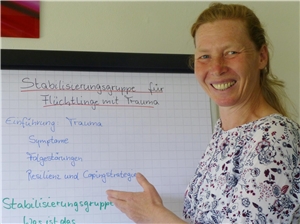 Stabilisierungsgruppe für
Flüchtlinge mit Trauma
Einführung: Trauma
Symptome
Folgestörungen
Resilienz und Copingstrategien
Stabilisierungsgruppe
Was ist das